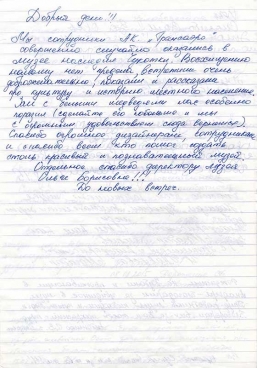 Добрый день!!
Мы сотрудники АК „Трансаэро"
совершенно случайно оказались в
музее наследия Чукотки. Восхищению
нашему нет предела. Встретили очень
доброжелательно, показали и рассказали
про культуру и историю местного населения.
Зал с белыми медведями нас особенно
поразил (сделайте его побольше и мы
с огромным удовольствием сюда вернемся)
Спасибо огромное дизайнерам, сотрудникам
и спасибо всем кто помог создать
столь красивый и познавательный музей.
Отдельное спасибо директору музея
Ольге Борисовне!!!
До новых встреч.